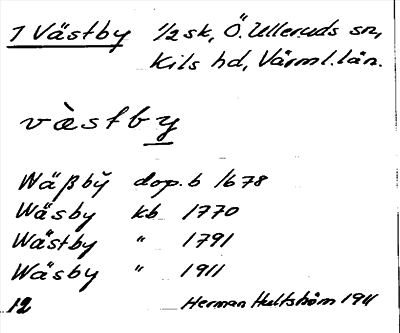 1 Västby 1/2 sk, Ö. Ulleruds sn,
Kils hd, Värml. län.
västby
Wäßbÿ dop.b 1678
Wäsby kb 1770
Wästby " 1791
Wäsby " 1911
12 Herman Hultström 1911